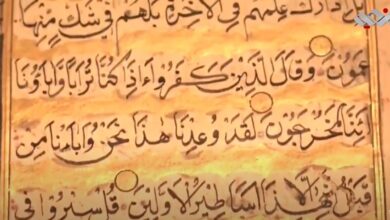 بل ادارك علمهم في الآخرة بل هم في شك منها
عمون وقال الذين كفروا ءاذا كنا ترابا وآباؤنا
ائنا لمخرجون لقد وعدنا هذا نحن وآباؤنا من
قبل ان هذا الا اساطير الاولين قل سيروا في